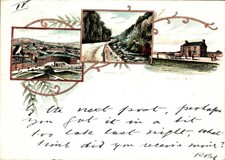 by the next post, perhaps
you got it in a bit
too late last night, what
time did you receive mine?